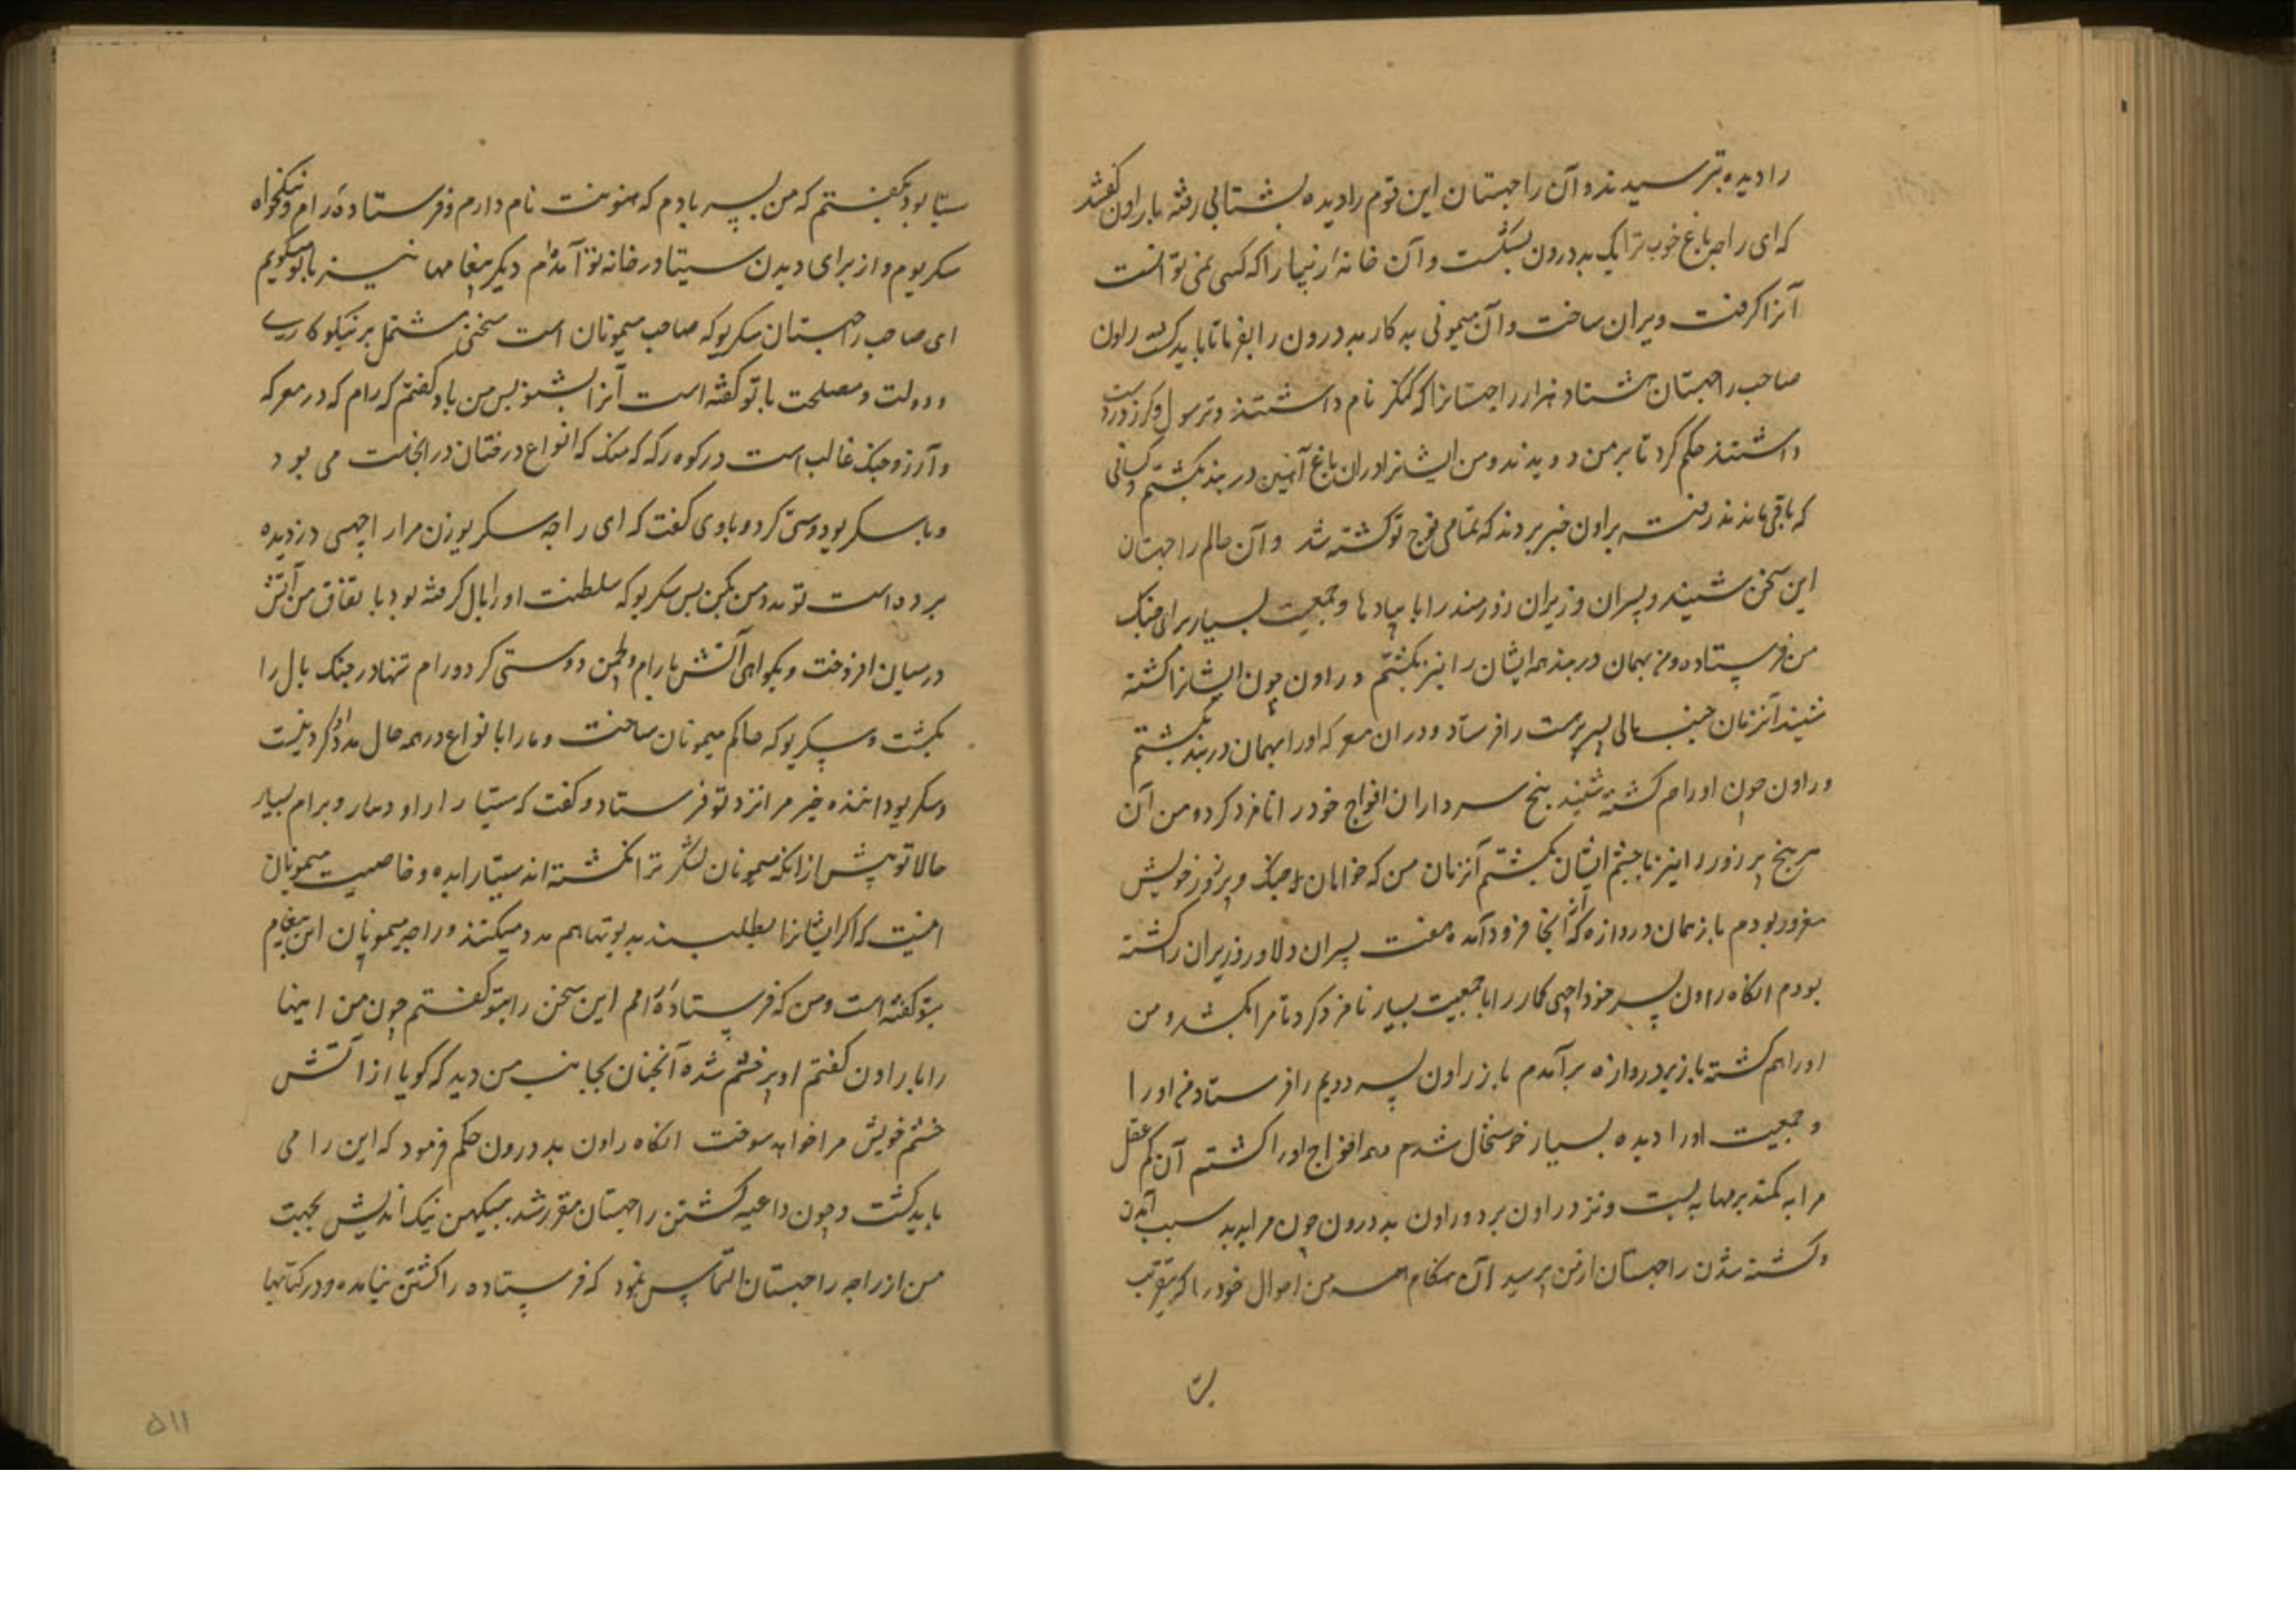 را دیده بترسیدند و آن راچهستان این قوم را دیده بشتابی رفته با راون گفتند
که ای راجه باغ خوب ترا یک بددرون بشکست و آن خانه را که کسی نمی توانست
آنرا گرفت ویران ساخت و آن میمونی بدکار بددرون را بفرما تا باید کشت راون
صاحب راچهستان هشتاد هزار راچهستانرا که کنکر نام داشتند و ترسول و کرز در دست
داشتند حکم کرد تا بر من دویدند و من ایشانرا دران باغ آهنین دربند بکشتم و کسانی
که باقی ماندند رفته براون خبر بردند که تمامی فوج تو کشته شد و آن ظالم راچهستان
این سخن شنید و پسران وزیران زورمند را با پیادها و جمعیت بسیار برای جنک
من فرستاده و من بهمان دربند همه ایشان را نیز بکشتم و راون چون ایشانرا کشته
شنید آنزمان جنب مالی پسر پرهست را فرستاد و دران معرکه اورا بهمان دربند بکشتم
و راون چون اورا هم کشته شنید پنج سرداران افواج خود را نامزد کرد و من آن
هر پنج پر زور را نیز با حشم ایشان بکشتم آنزمان من که خواهان جنک و بر زور خویش
مغرور بودم باز بهمان دروازه که از آنجا فرود آمده هفت پسران دلاور وزیران را کشته
بودم آنگاه راون پسر خود اچهی کمار را با جمعیت بسیار نامزد کرد تا مرا بکشد و من
اورا هم کشته باز بر دروازه برآمدم باز راون پسر دویم را فرستاد من اورا
و جمعیت اورا دیده بسیار خوشحال شدم همه افواج اورا کشتم آن کم عقل
مرا به کمند برمها به بست و نزد راون برد و راون بددرون چون مرا بدید سبب آمدن
و کشته شدن راچهستان از من پرسید آن هنگام همه من احوال خود را که بتقریب
ستا
ستا بود بگفتم که من پسر بادم که هنونت نام دارم و فرستادهٔ رام و نیکخواه
سکریوم و از برای دیدن سیتا در خانه تو آمده‌ام دیگر پیغامها نیز با تو میکویم
ای صاحب راچهستان سکریو که صاحب میمونان است سخنی مشتمل بر نیکوکاری
و دولت و مصلحت با تو گفته است آنرا بشنو پس من باو گفتم که رام که در معرکه
و آرزو جنک غالب است در کوه رکه کمنک که انواع درختان در انجاست می بود
و با سکریو دوستی کرد و با وی گفت که ای راجه سکریو زن مرا راچهسی دزدیده
برده است تو مدد من بکن پس سکریو که سلطنت اورا بال گرفته بود با تفاق من آتش
درمیان افروخت و بگواهی آتش با رام و لچمن دوستی کرد و رام تنها در جنک بال را
بکشت و سکریو که حاکم میمونان ساخت و مارا بانواع در همه حال مدد او کردنیست
و سکریو داننده خیر مرا نزد تو فرستاد و گفت که سیتا را از او بیار و برام بسپار
حالا تو پیش از انکه میمونان لشکر ترا نکشته‌اند سیتا را بده و خاصیت میمونان
اینست که اکر ایشانرا بطلبند به دیوتها هم مدد میکنند و راجه میمونان این پیغام
بتو گفته است و من که فرستادهٔ اوام این سخن را بتو گفتم چون من اینها
را با راون گفتم او پر خشم شده آنچنان بجانب من دید که گویا از آتش
خشم خویش مرا خواهد سوخت آنگاه راون بددرون حکم فرمود که این را می
باید کشت و چون داعیه کشتن راچهستان مقرر شد ببهیکهن نیک اندیش بجهت
من از راجه راچهستان التماس نمود که فرستاده را کشتن نیامده و در کتابها
۵۱۱